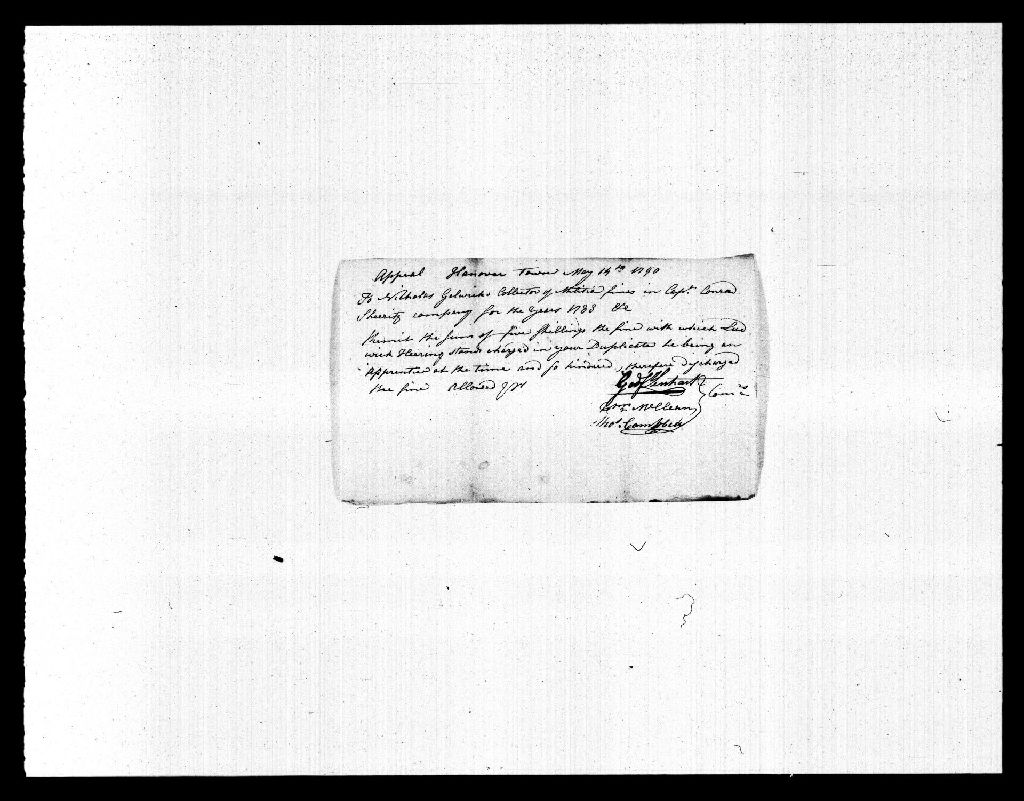 Appeal Hanover Town May 14th 1790
To Nicholas Gelwicks Collector of Militia fines in Capt. Conrad
Sherritz company for the Years 1783 &c
Remit the Sum of five Shillings the fine with which Lud
wick Hearing stands charged in your Duplicate he being an
Apprentice at the time and so hindered, therefore discharged
the fine Allowed
Godf Lenhart
Wm McClean
Thos. Campbell